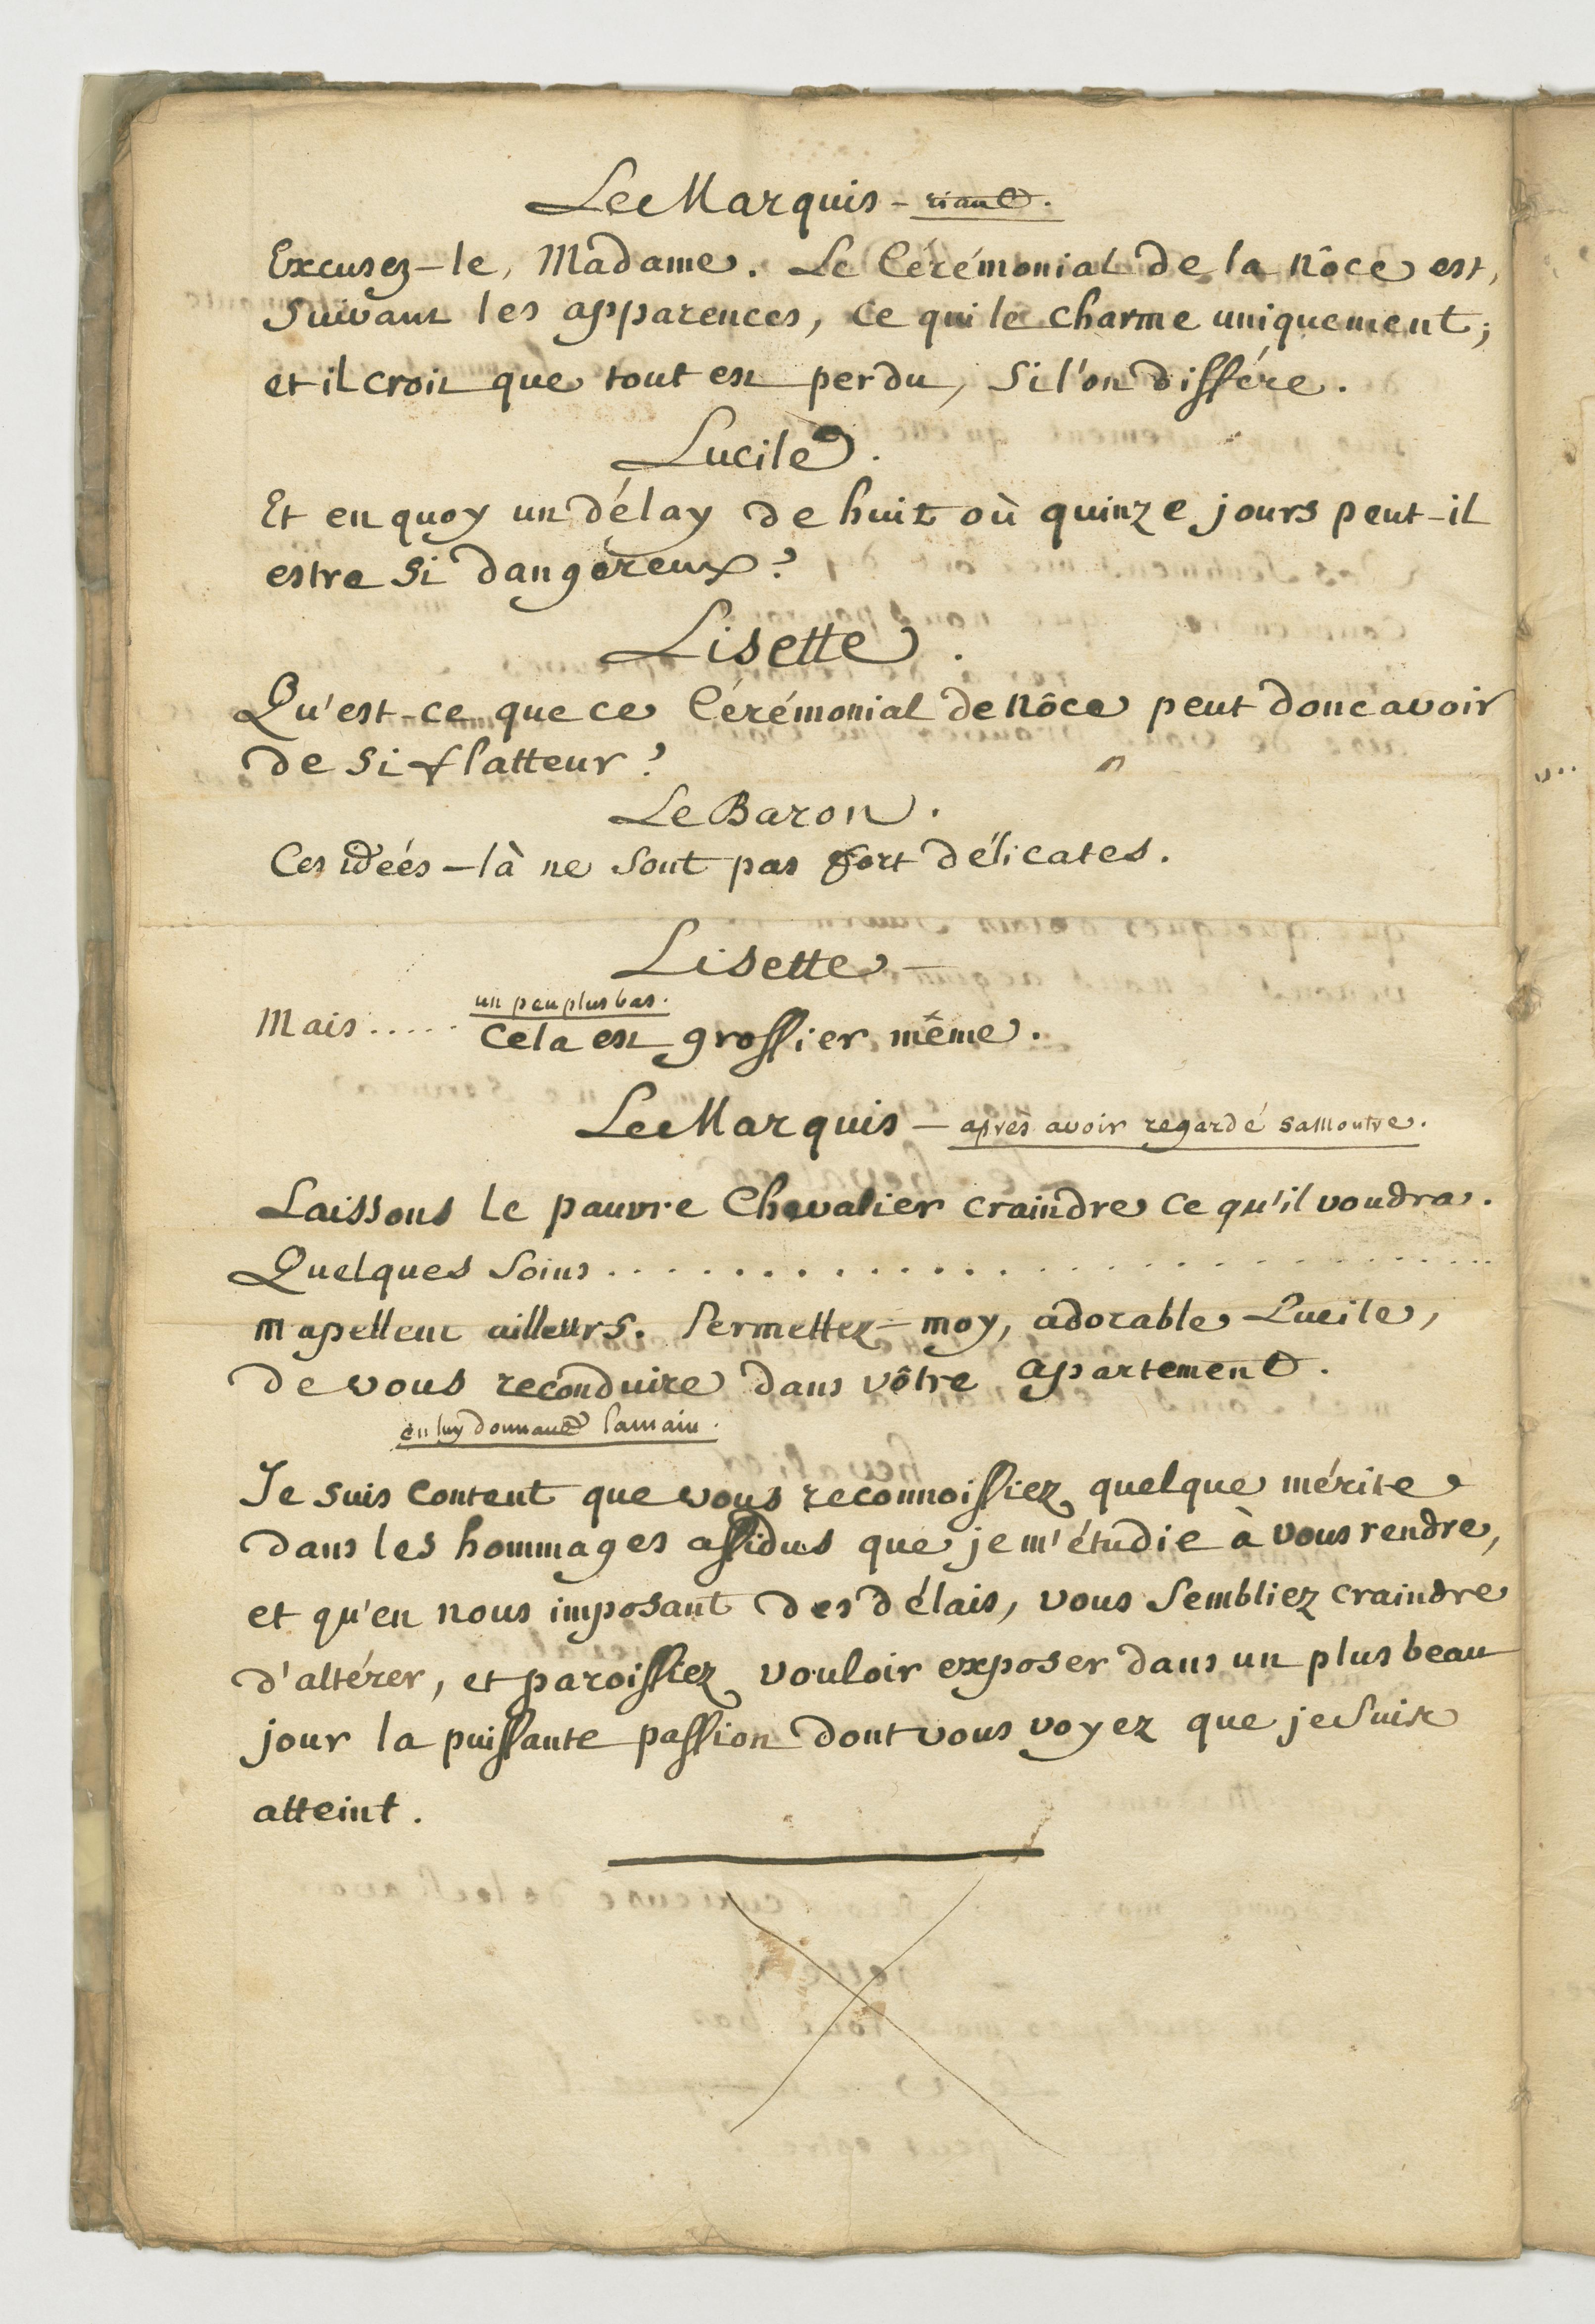 Le Marquis – riant.
Excusez-le, Madame. Le Cérémonial de la nôce est,
suivant les apparences, ce qui le charme uniquement;
et il croit que tout est perdu, si l'on différe.
Lucile.
Et en quoy un délay de huit où quinze jours peut-il
estre si dangéreux?
Lisette.
Qu'est-ce que ce Cérémonial de nôce peut donc avoir
de si flatteur?
Le Baron.
Ces idées-là ne sont pas fort délicates.
Lisette –
un peu plus bas.
Mais..... Cela est grossier même.
Le Marquis – après avoir regardé sa montre.
Laissons le pauvre Chevalier craindre ce qu'il voudra.
Quelques soins . . . . . . . . . . . . . . . . . . . . . . . .
m'apellent ailleurs. Permettez-moy, adorable Lucile,
de vous reconduire dans vôtre apartement.
en luy donnant la main.
Je suis content que vous reconnoissiez quelque mérite
dans les hommages assidus que je m'étudie à vous rendre,
et qu'en nous imposant des délais, vous sembliez craindre
d'altérer, et paroissiez vouloir exposer dans un plus beau
jour la puissante passion dont vous voyez que je suis
atteint.